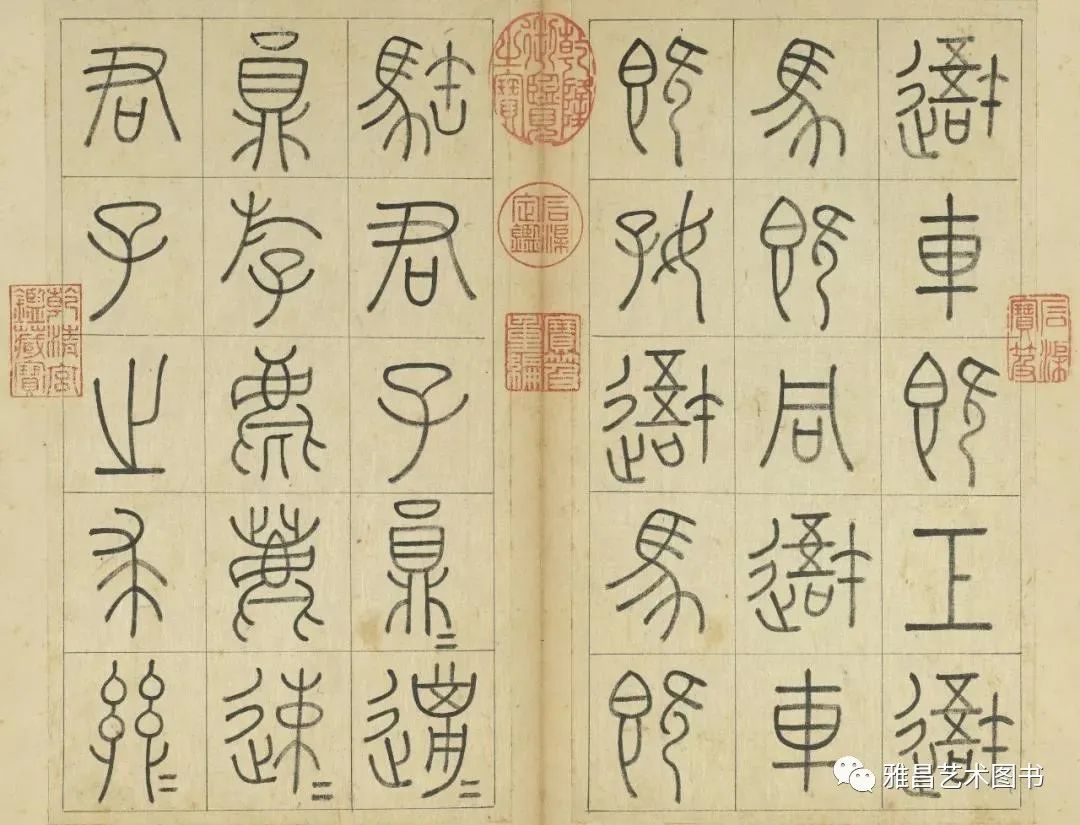 吾車既工吾
馬既同吾車
既好吾馬既
𩢾君子員=邋=
員斿麀鹿速=
君子之求
石渠寶笈
乾隆御覽之寶
石渠定鑑
寶笈重編
乾清宮鑑藏寶
雅昌艺术图书